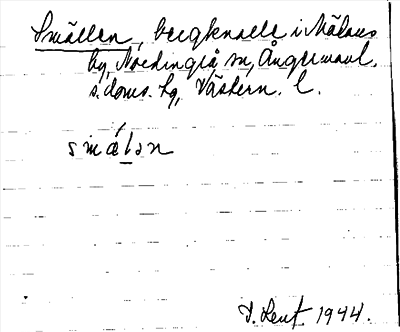 Smällen, bergknalle i Mälens
by, Nordingrå sn, Ångermanl.
s. doms. hg, Västern. l.
smálən
1944.